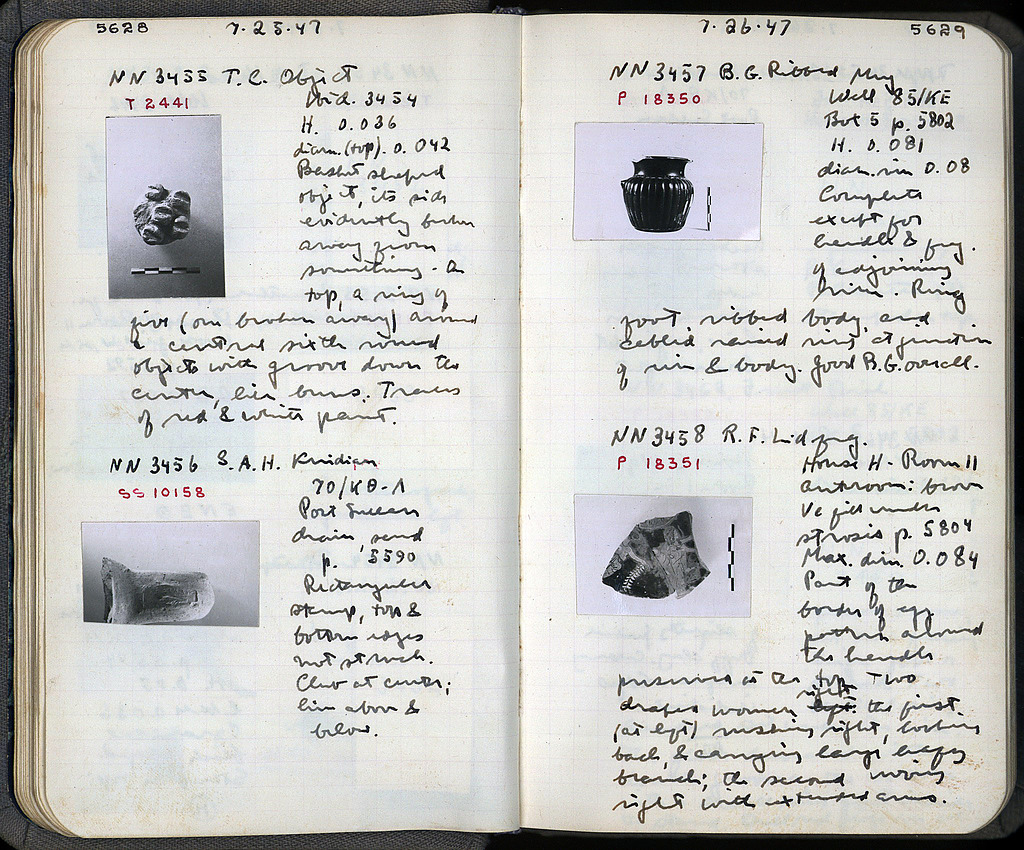 5628 7-25-47
NN 3455 T.C. Object
T 2441
Ibid. 3454
H. 0.036
diam. (top). 0.042
Basket shaped
object, its side
evidently broken
away from
something. On
top, a ring of
five (one broken away) around
a central sixth round
objects with groove down the
center, like buns. Traces
of red & white paint.
NN 3456 S.A.H. Knidian
SS 10158
70/ΚΘ-Λ
Post Sullan
drain, sand
p. 5590
Rectangular
stamp, top &
bottom edges
not struck.
Club at center;
line above &
below.
7-26-47 5629
NN 3457 B.G. Ribbed Mug
P 18350
Well 85/ΚΕ
Box 5 p. 5802
H. 0.081
diam. rim 0.08
Complete
except for
handle & frag.
of adjoining
brim. Ring
foot, ribbed body, and
raised ring at junction
of rim & body. Good B.G. overall.
NN 3458 R.F. Lid frag.
P 18351
House H- Room 11
anteroom: brown
Vc fill under
strosis p. 5804
Max. dim. 0.084
Part of the
border of egg
pattern around
the handle
preserved at the top. Two
right
draped women the first
(at left) rushing right, looking
back, & carrying large leafy
branch; the second moving
right with extended arms.